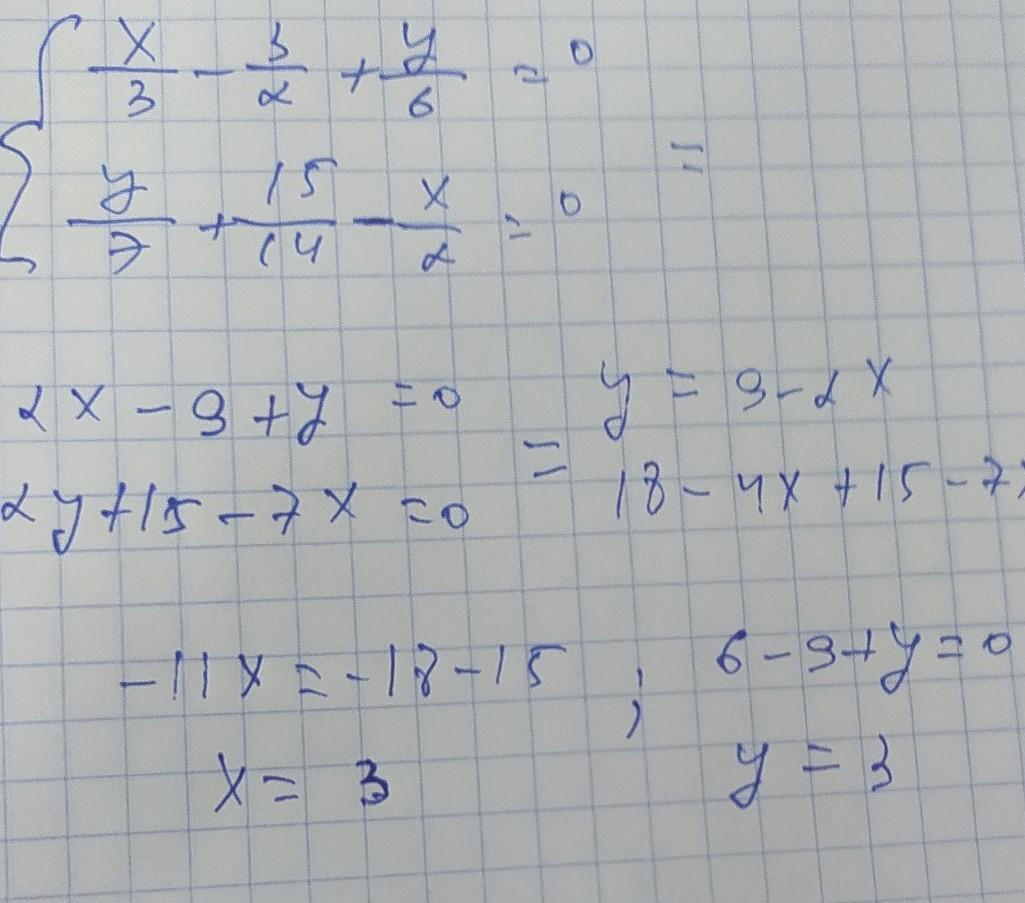 x/3 - 3/2 + y/6 = 0
=
y/7 + 15/14 - x/2 = 0
2x - 9 + y = 0 = y = 9 - 2x
2y + 15 - 7x = 0 18 - 4x + 15 - 7x
-11x = -18 - 15 ; 6 - 9 + y = 0
x = 3 y = 3